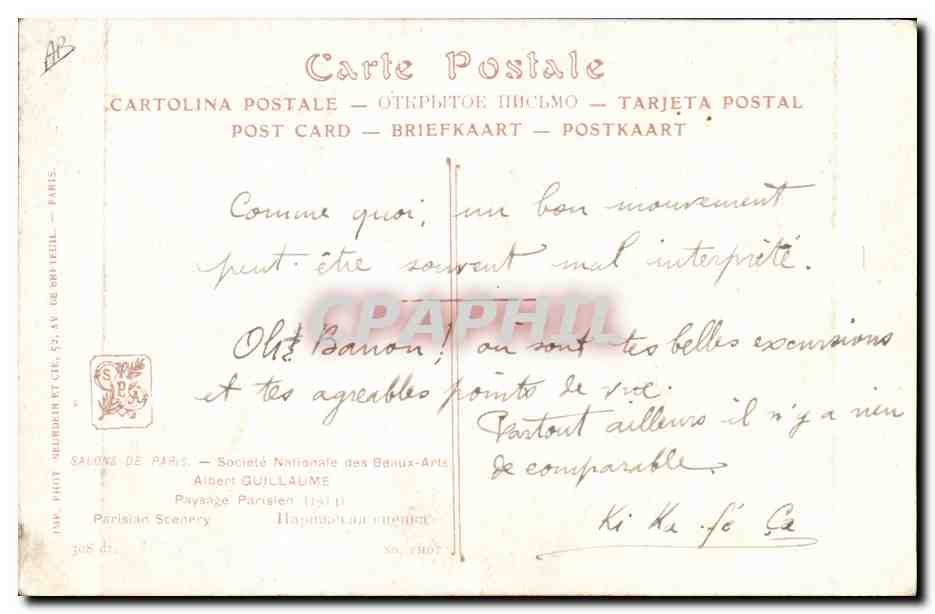 AB
Carte Postale
CARTOLINA POSTALE — ОТКРЫТОЕ ПИСЬМО — TARJETA POSTAL
POST CARD — BRIEFKAART — POSTKAART
Comme quoi, un bon mouvement
peut-être souvent mal interprété.
CPAPHIL
Oh! Banon! où sont tes belles excursions
et tes agréables points de vue.
Partout ailleurs il n'y a rien
de comparable.
Ki Ka fé Ça
SPA
SALONS DE PARIS. — Société Nationale des Beaux-Arts
Albert GUILLAUME
Paysage Parisien (1914)
Parisian Scenery
IMP. PHOT. NEURDEIN ET CIE, 52, AV. DE BRETEUIL. — PARIS.
ND. PHOT